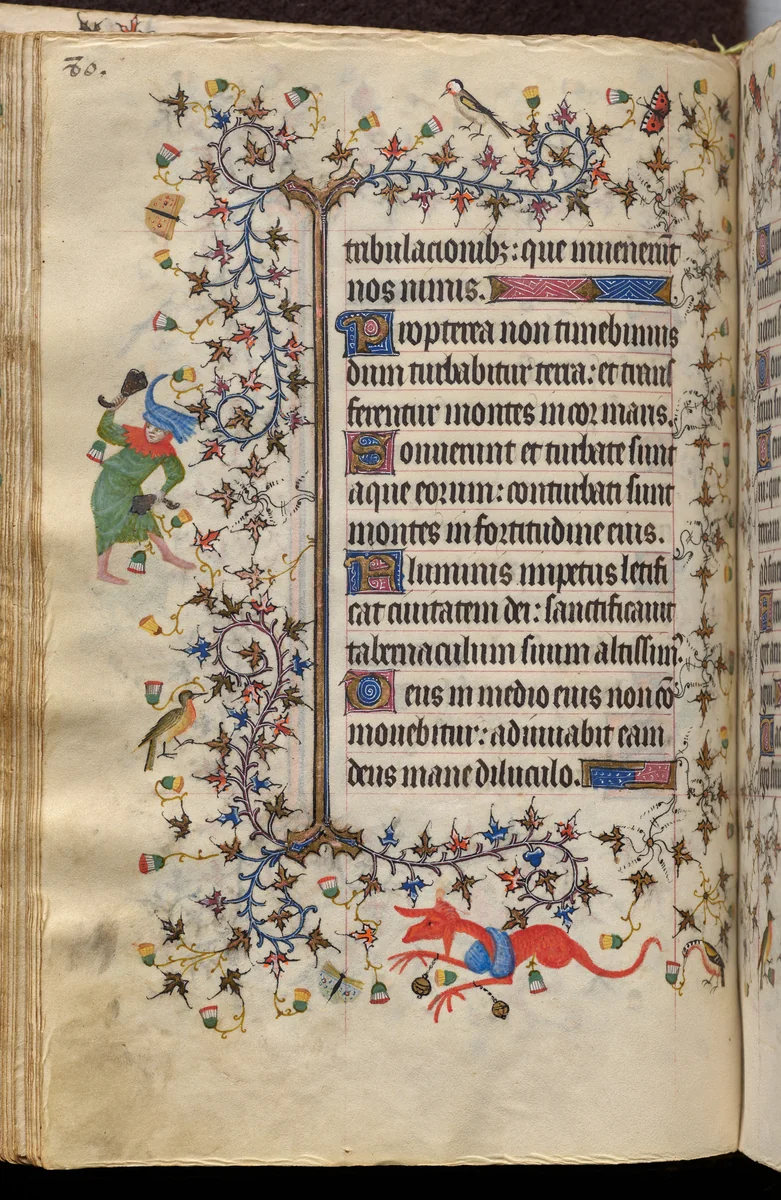 80.
tribulacionibꝫ: que inuenerūt
nos nimis.
Propterea non timebimus
dum turbabitur terra: et trans
ferentur montes in cor maris.
Sonuerunt et turbate sunt
aque eorum: conturbati sunt
montes in fortitudine eius.
Fluminis impetus letifi
cat ciuitatem dei: sanctificauit
tabernaculum suum altissimꝰ.
Deus in medio eius non cō
mouebitur: adiuuabit eam
deus mane diluculo.